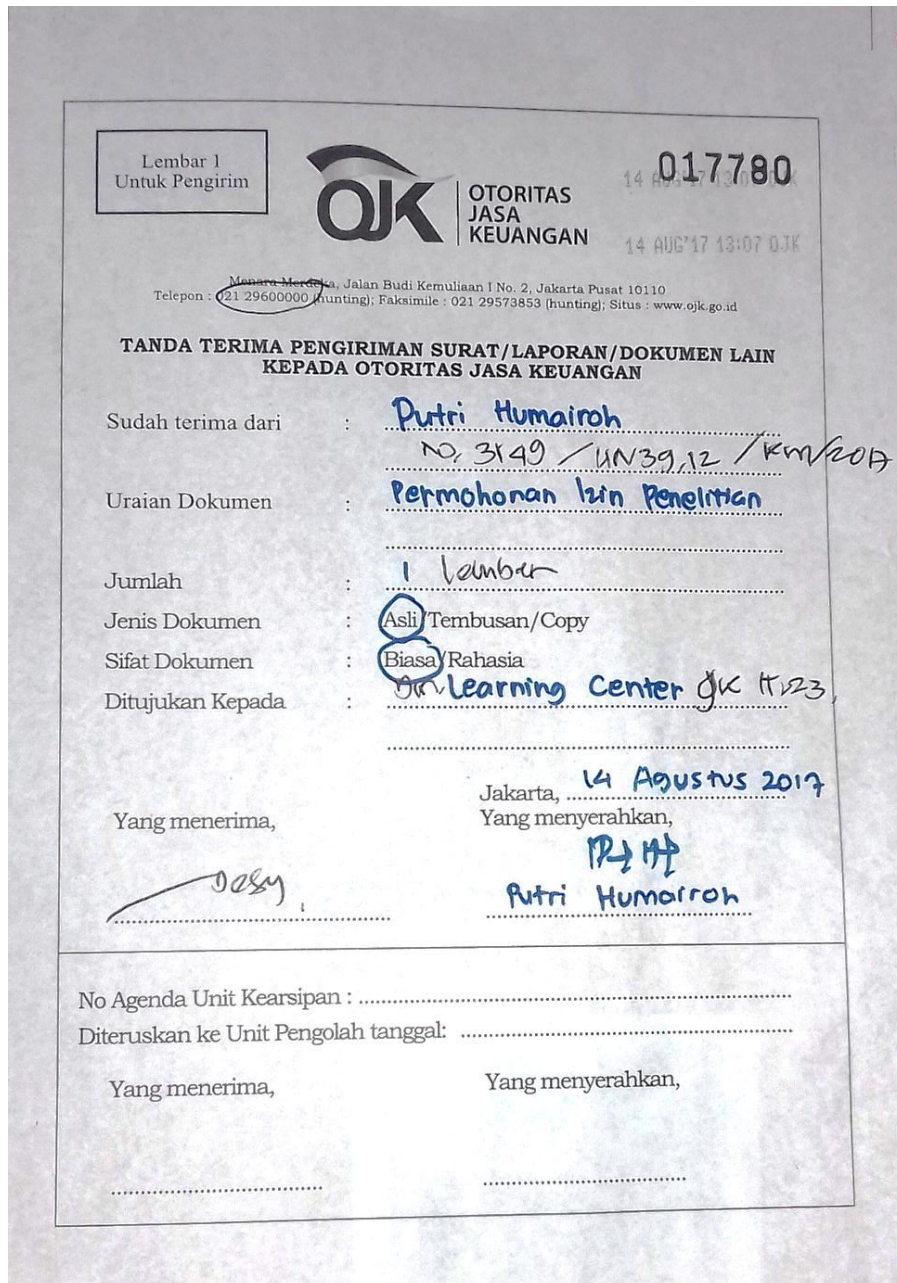 Lembar 1
Untuk Pengirim
OJK
OTORITAS
JASA
KEUANGAN
017780
14 AUG'17 13:07 OJK
Menara Merdeka, Jalan Budi Kemuliaan I No. 2, Jakarta Pusat 10110
Telepon : 021 29600000 (hunting); Faksimile : 021 29573853 (hunting); Situs : www.ojk.go.id
TANDA TERIMA PENGIRIMAN SURAT/LAPORAN/DOKUMEN LAIN
KEPADA OTORITAS JASA KEUANGAN
Sudah terima dari : Putri Humairoh
No. 3149 / UN39.12 / KM/2017
Uraian Dokumen : Permohonan Izin Penelitian
Jumlah : 1 Lembar
Jenis Dokumen : Asli/Tembusan/Copy
Sifat Dokumen : Biasa/Rahasia
Ditujukan Kepada : Learning Center OJK
Jakarta, 14 Agustus 2017
Yang menerima, Yang menyerahkan,
Desy Putri Humairoh
No Agenda Unit Kearsipan :
Diteruskan ke Unit Pengolah tanggal:
Yang menerima, Yang menyerahkan,